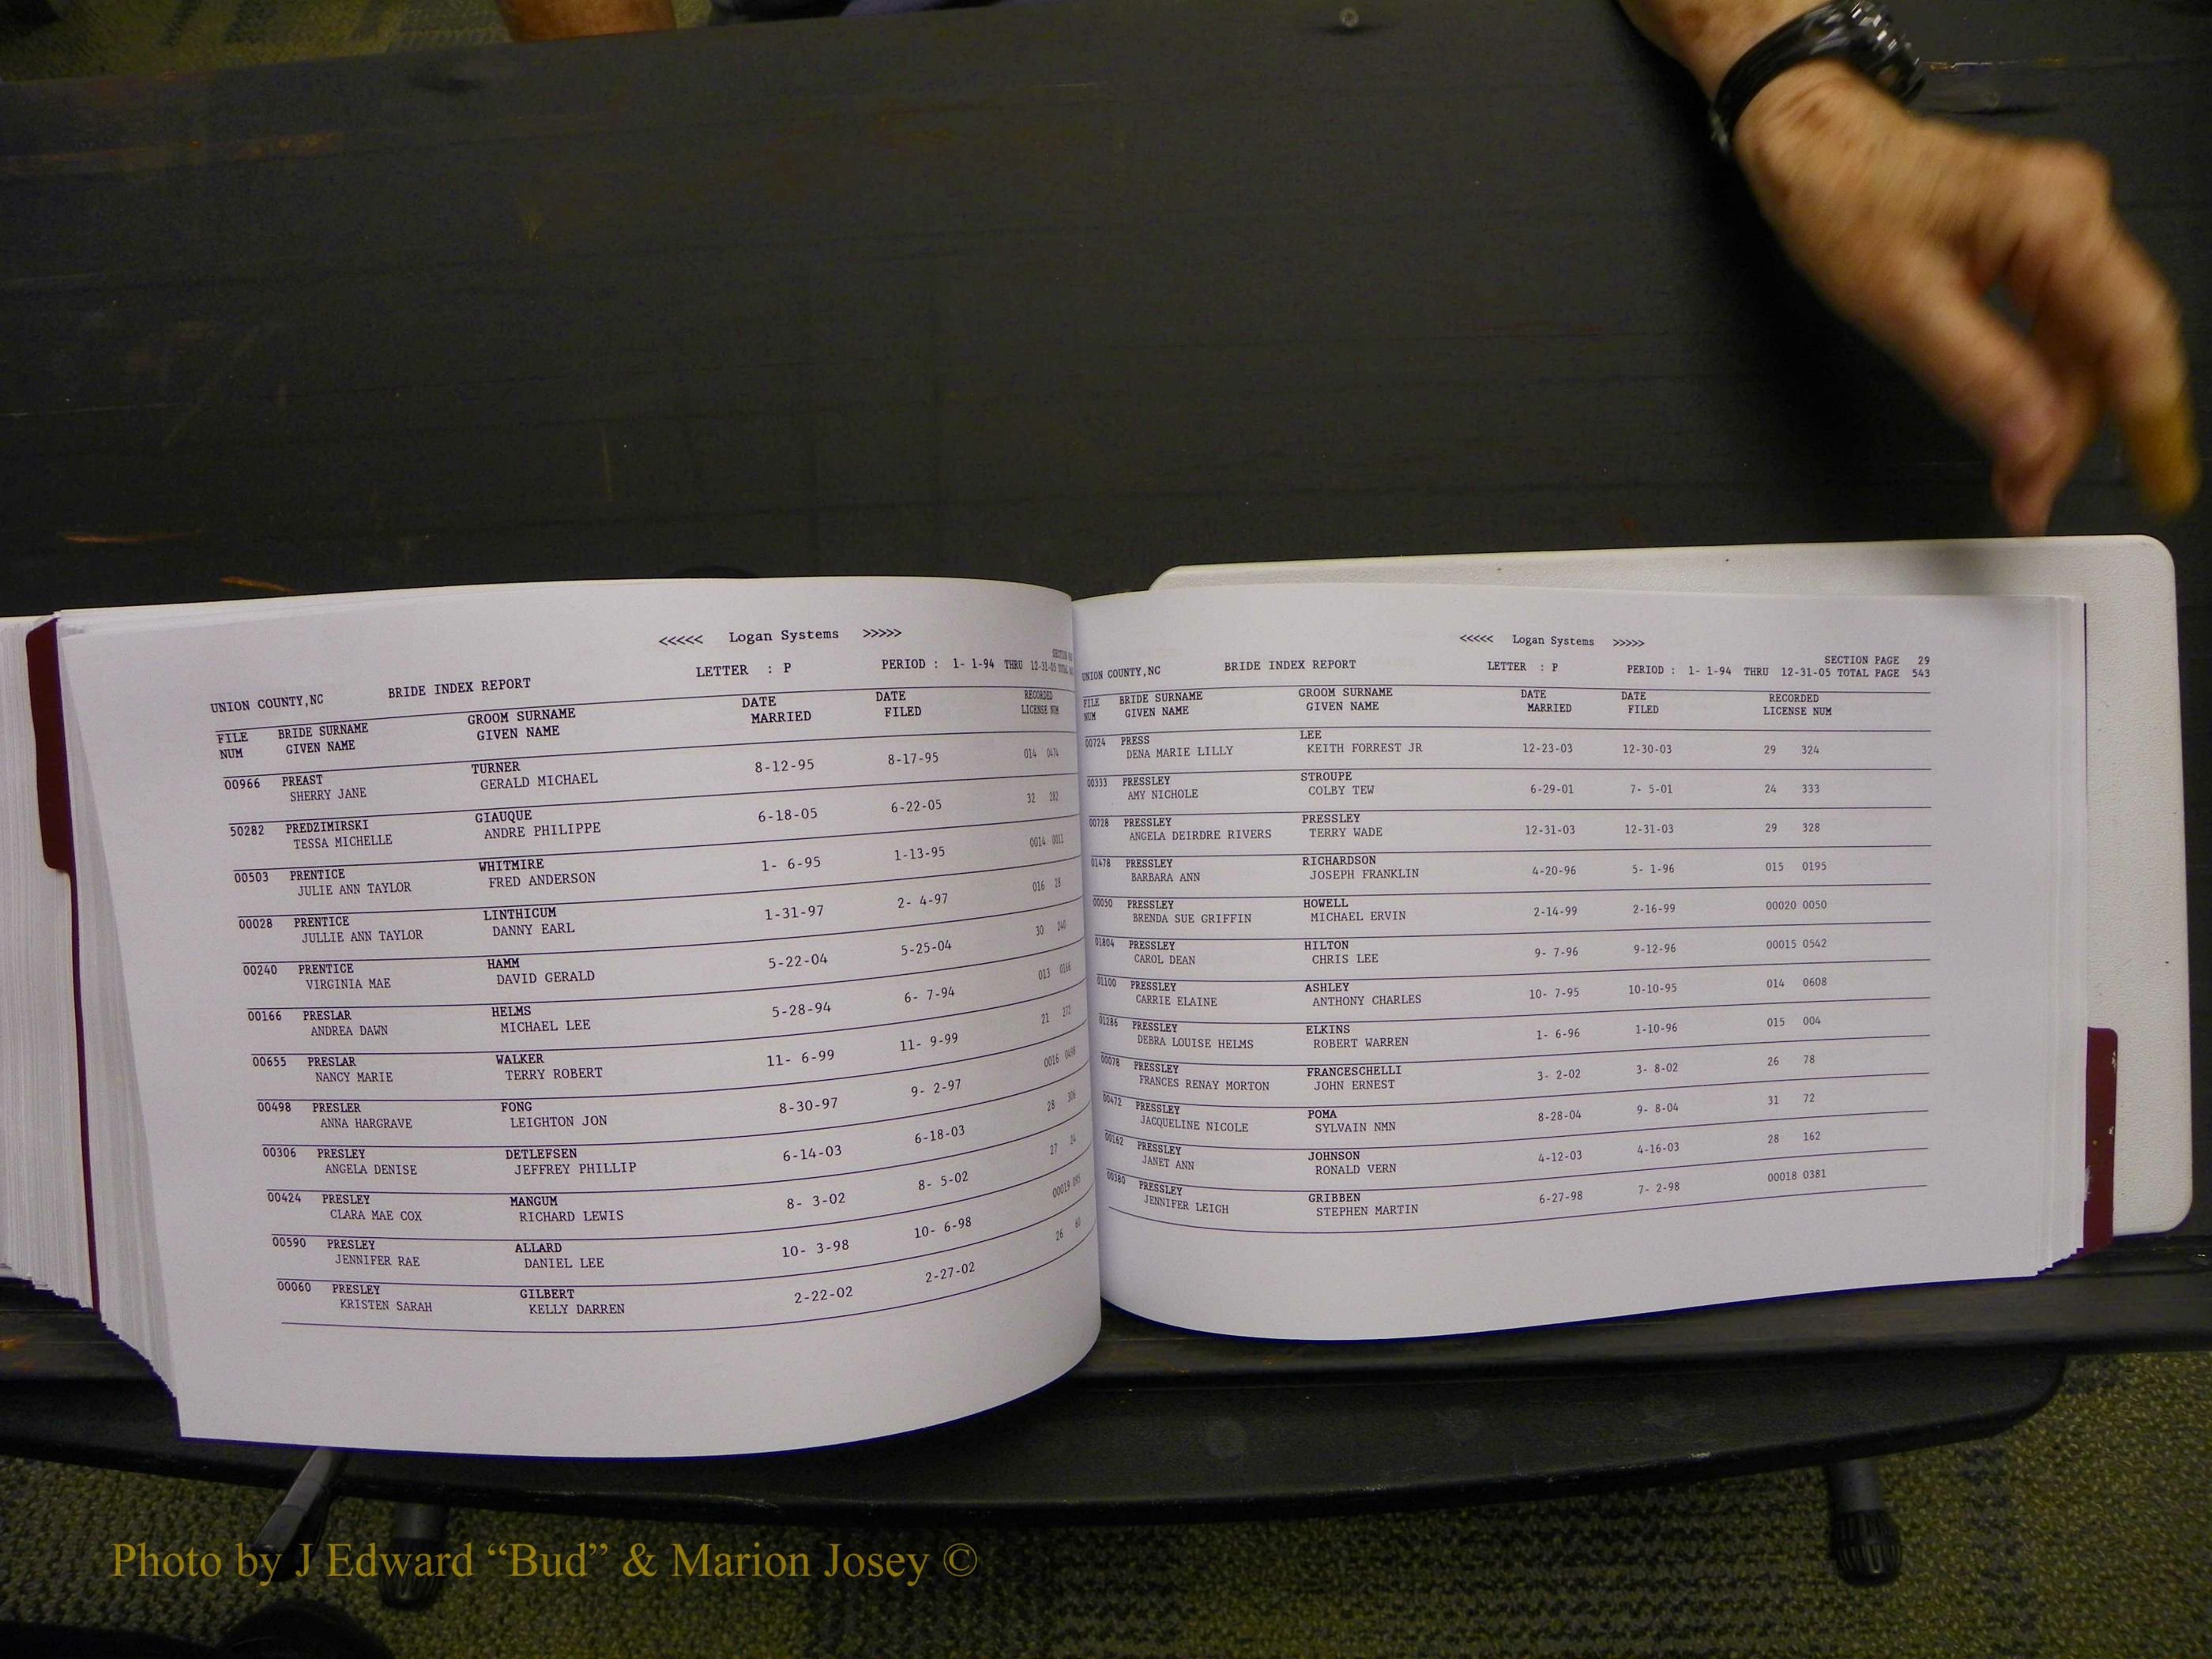 <<<<< Logan Systems >>>>>
UNION COUNTY,NC BRIDE INDEX REPORT LETTER : P PERIOD : 1- 1-94 THRU 12-31-05 TOTAL
FILE BRIDE SURNAME GROOM SURNAME DATE DATE RECORDED
NUM GIVEN NAME GIVEN NAME MARRIED FILED LICENSE NUM
00966 PREAST TURNER 8-12-95 8-17-95 014 0474
SHERRY JANE GERALD MICHAEL
50282 PREDZIMIRSKI GIAUQUE 6-18-05 6-22-05 32 282
TESSA MICHELLE ANDRE PHILIPPE
00503 PRENTICE WHITMIRE 1- 6-95 1-13-95 0014
JULIE ANN TAYLOR FRED ANDERSON
00028 PRENTICE LINTHICUM 1-31-97 2- 4-97 016 28
JULLIE ANN TAYLOR DANNY EARL
00240 PRENTICE HAMM 5-22-04 5-25-04 30 240
VIRGINIA MAE DAVID GERALD
00166 PRESLAR HELMS 5-28-94 6- 7-94 013 0166
ANDREA DAWN MICHAEL LEE
00655 PRESLAR WALKER 11- 6-99 11- 9-99 21
NANCY MARIE TERRY ROBERT
00498 PRESLER FONG 8-30-97 9- 2-97 0016 0498
ANNA HARGRAVE LEIGHTON JON
00306 PRESLEY DETLEFSEN 6-14-03 6-18-03 28 306
ANGELA DENISE JEFFREY PHILLIP
00424 PRESLEY MANGUM 8- 3-02 8- 5-02 27 24
CLARA MAE COX RICHARD LEWIS
00590 PRESLEY ALLARD 10- 3-98 10- 6-98 00019
JENNIFER RAE DANIEL LEE
00060 PRESLEY GILBERT 2-22-02 2-27-02 26 60
KRISTEN SARAH KELLY DARREN
<<<<< Logan Systems >>>>>
SECTION PAGE 29
UNION COUNTY,NC BRIDE INDEX REPORT LETTER : P PERIOD : 1- 1-94 THRU 12-31-05 TOTAL PAGE 543
FILE BRIDE SURNAME GROOM SURNAME DATE DATE RECORDED
NUM GIVEN NAME GIVEN NAME MARRIED FILED LICENSE NUM
00724 PRESS LEE 12-23-03 12-30-03 29 324
DENA MARIE LILLY KEITH FORREST JR
00333 PRESSLEY STROUPE 6-29-01 7- 5-01 24 333
AMY NICHOLE COLBY TEW
00728 PRESSLEY PRESSLEY 12-31-03 12-31-03 29 328
ANGELA DEIRDRE RIVERS TERRY WADE
01478 PRESSLEY RICHARDSON 4-20-96 5- 1-96 015 0195
BARBARA ANN JOSEPH FRANKLIN
00050 PRESSLEY HOWELL 2-14-99 2-16-99 00020 0050
BRENDA SUE GRIFFIN MICHAEL ERVIN
01804 PRESSLEY HILTON 9- 7-96 9-12-96 00015 0542
CAROL DEAN CHRIS LEE
01100 PRESSLEY ASHLEY 10- 7-95 10-10-95 014 0608
CARRIE ELAINE ANTHONY CHARLES
01286 PRESSLEY ELKINS 1- 6-96 1-10-96 015 004
DEBRA LOUISE HELMS ROBERT WARREN
00078 PRESSLEY FRANCESCHELLI 3- 2-02 3- 8-02 26 78
FRANCES RENAY MORTON JOHN ERNEST
00472 PRESSLEY POMA 8-28-04 9- 8-04 31 72
JACQUELINE NICOLE SYLVAIN NMN
00162 PRESSLEY JOHNSON 4-12-03 4-16-03 28 162
JANET ANN RONALD VERN
00380 PRESSLEY GRIBBEN 6-27-98 7- 2-98 00018 0381
JENNIFER LEIGH STEPHEN MARTIN
Photo by J Edward “Bud” & Marion Josey ©